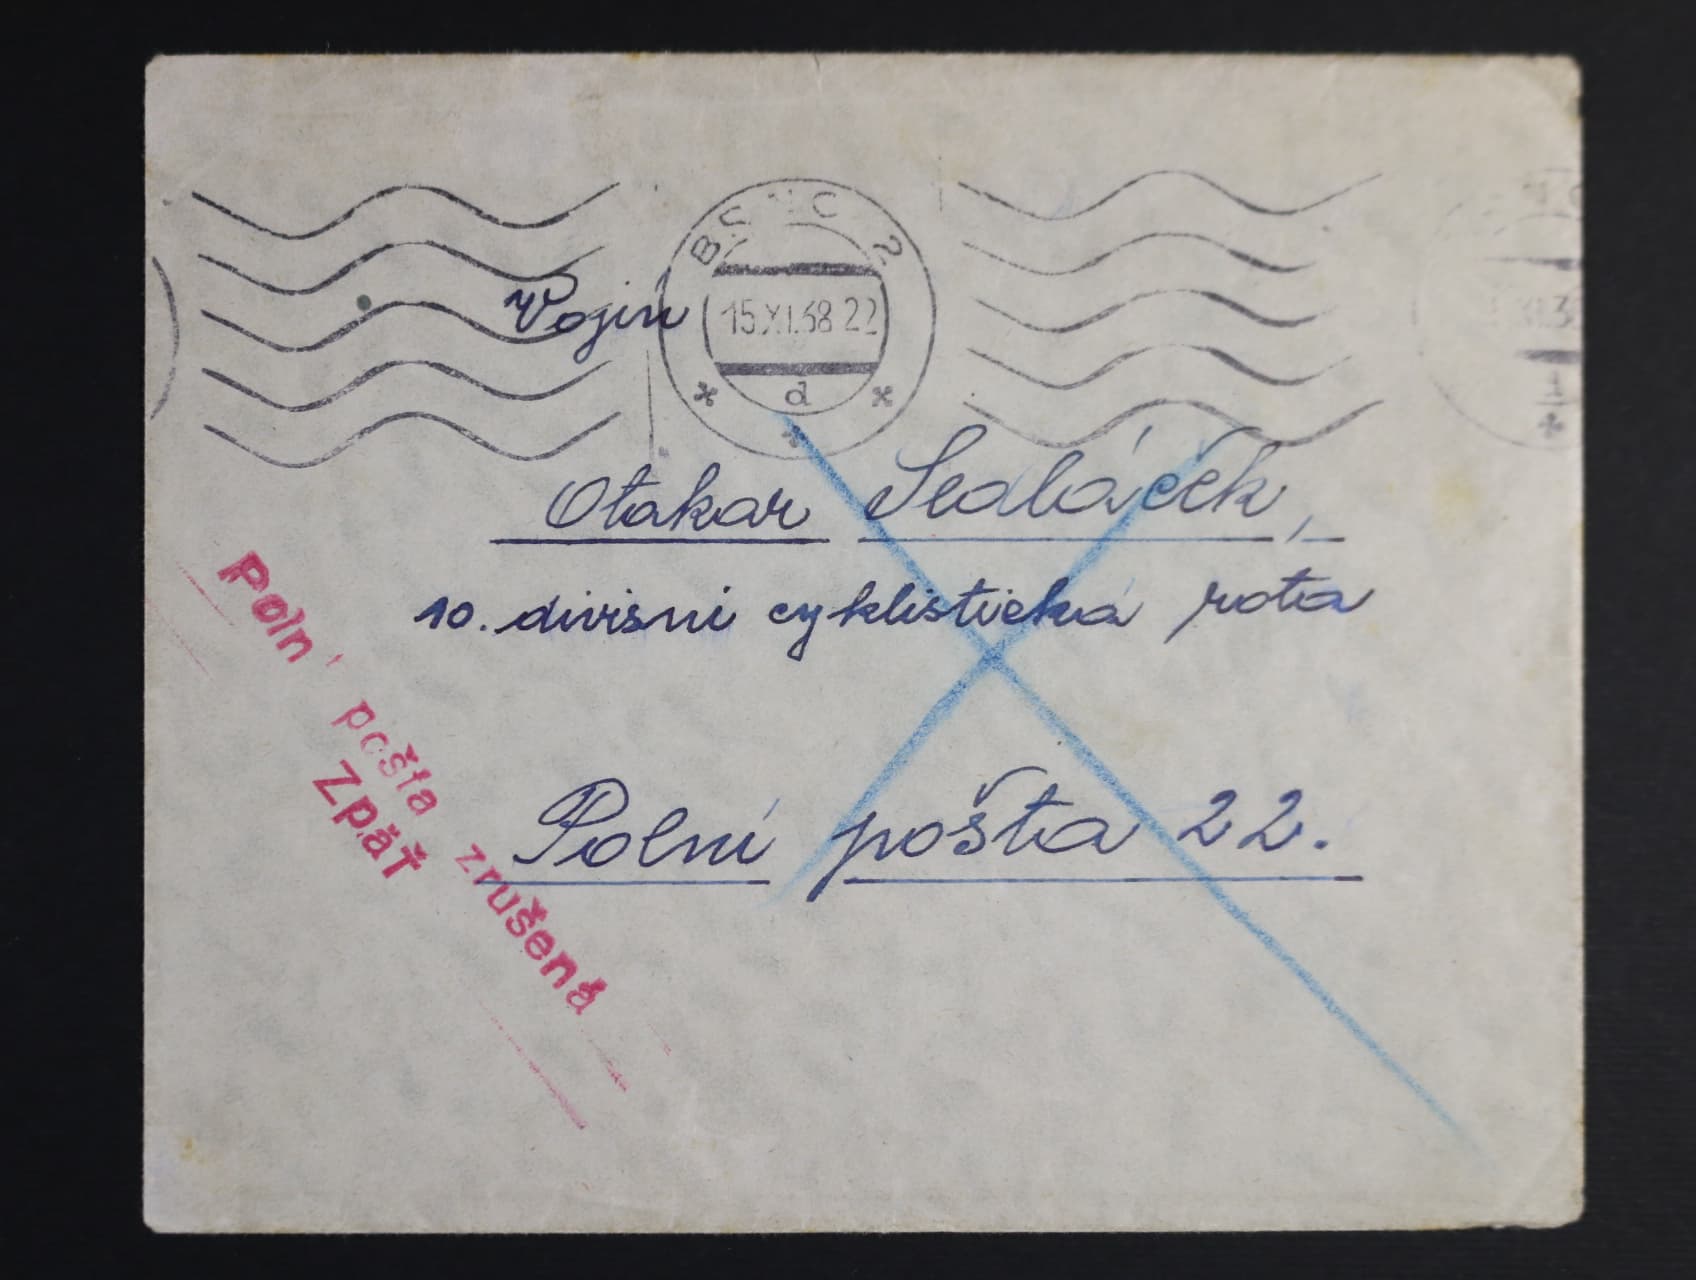 2
15.XI.38 22
d
Vojín
Otakar Sedláček,
10. divisní cyklistická rota
Polní pošta 22.
Poln' pošta zrušená
Zpäť